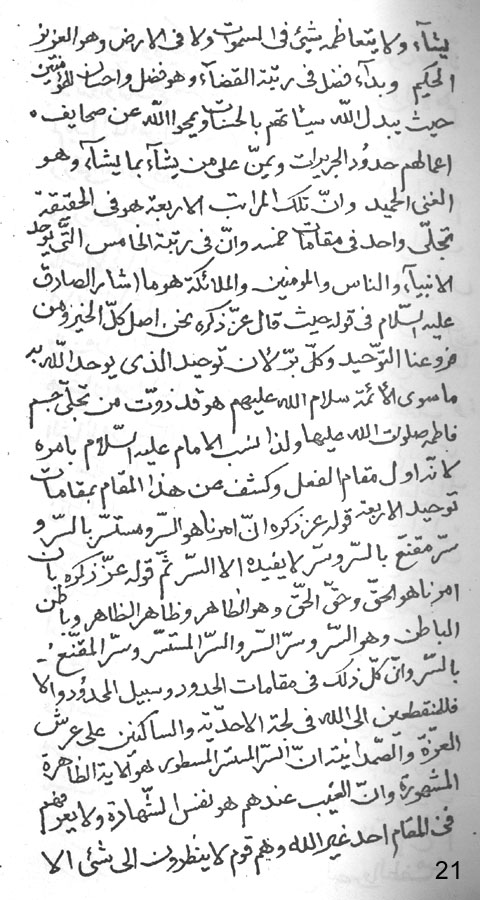 يشآء ولا يتعاظمه شيئ فى السموات ولا فى الارض وهو العزيز
الحكيم وبدآء فضل فى رتبة القضآء وهو فضل واحسان للمؤمنين
حيث يبدل الله سيئاتهم بالحسنات ويمحوا الله عن صحايف
اعمالهم حدود الجريرات ويمنّ على من يشآء بما يشآء وهو
الغنى الحميد وانّ تلك المراتب الاربعة هو فى الحقيقة
تجلّى واحد فى مقامات خمسه وانّ فى رتبة الخامس التى يوحد
الانبيآء والناس والمومنين والملائكة هو ما اشار الصادق
عليه السّلام فى قوله حيث قال عزّ ذكره نحن اصل كلّ الخير ومن
فروعنا التوّحيد وكلّ برّ لان توحيد الذى يوحد الله به
ما سوى الأئمّة سلام الله عليهم هو قد ذوّت من تجلّى جسم
فاطمه صلوت الله عليها ولذا نسب الامام عليه السّلام بامره
لانّه اول مقام الفعل وكشف عن هذا المقام بمقامات
توحيد الاربعة قوله عز ذكره انّ امرنا هو السرّ ومستسرّ بالسرّ و
سرّ مقنّع بالسرّ وسرّ لا يفيده الا السرّ ثمّ قوله عزّ ذكره بان
امرنا هو الحقّ وحقّ الحقّ وهو الظاهر وظاهر الظاهر وباطن
الباطن وهو السرّ وسرّ السرّ والسرّ المستسّر وسرّ المقنّع
بالسرّ وانّ كلّ ذلك فى مقامات الحدود وسبيل المحدود والا
فللمنقطعين الى الله فى لجة الاحديّة والساكنين على عرش
العزّة والصّمدانيّة انّ السرّ المستسرّ المسطور هو الاية الظاهرة
المشهورة وانّ الغيب عندهم هو نفس الشّهادة ولا يعرفهم
فى المقام احد غير الله وهم قوم لا ينظرون الى شئى الا
21